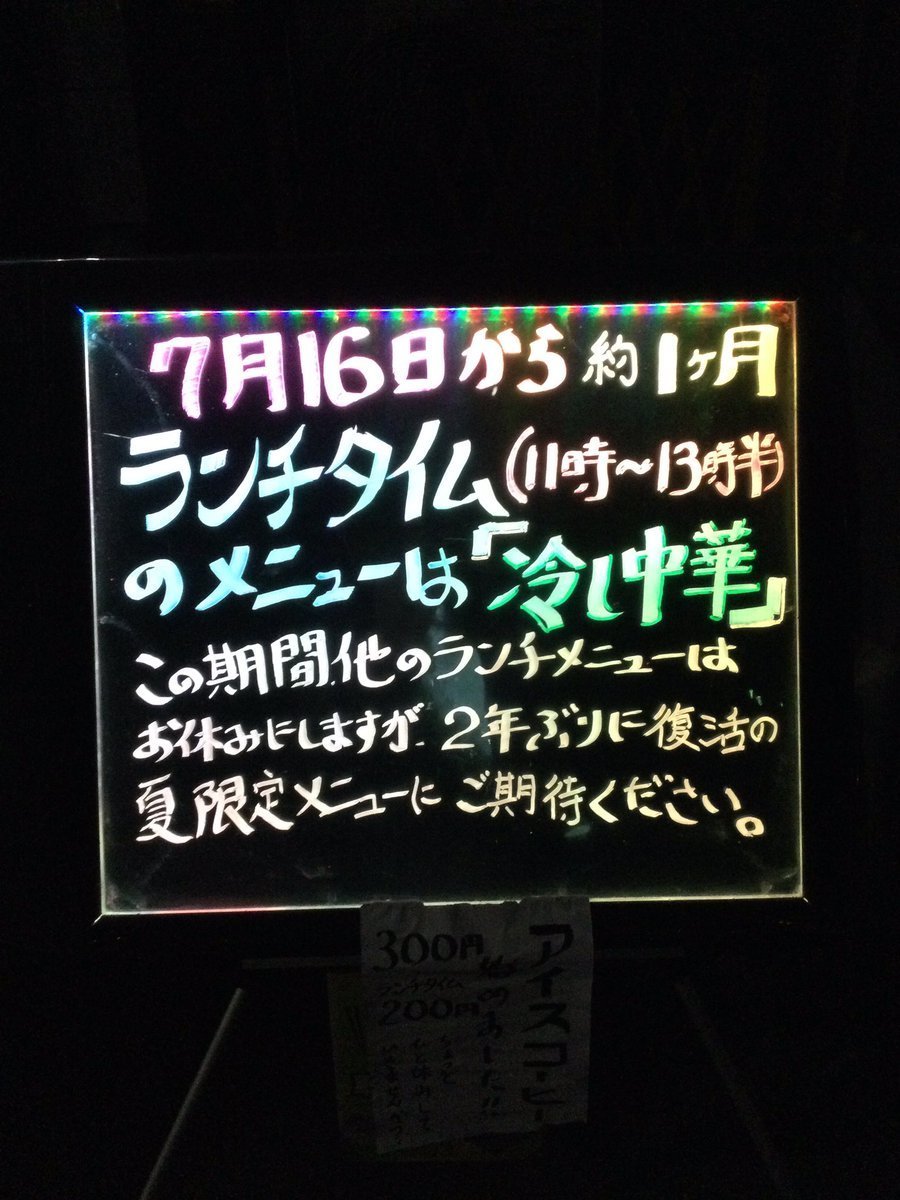 7月16日から約1ヶ月
ランチタイム(11時〜13時半)
のメニューは『冷し中華』
この期間、他のランチメニューは
お休みにしますが、2年ぶりに復活の
夏限定メニューにご期待ください。
アイスコーヒー
300円
ランチタイム
200円